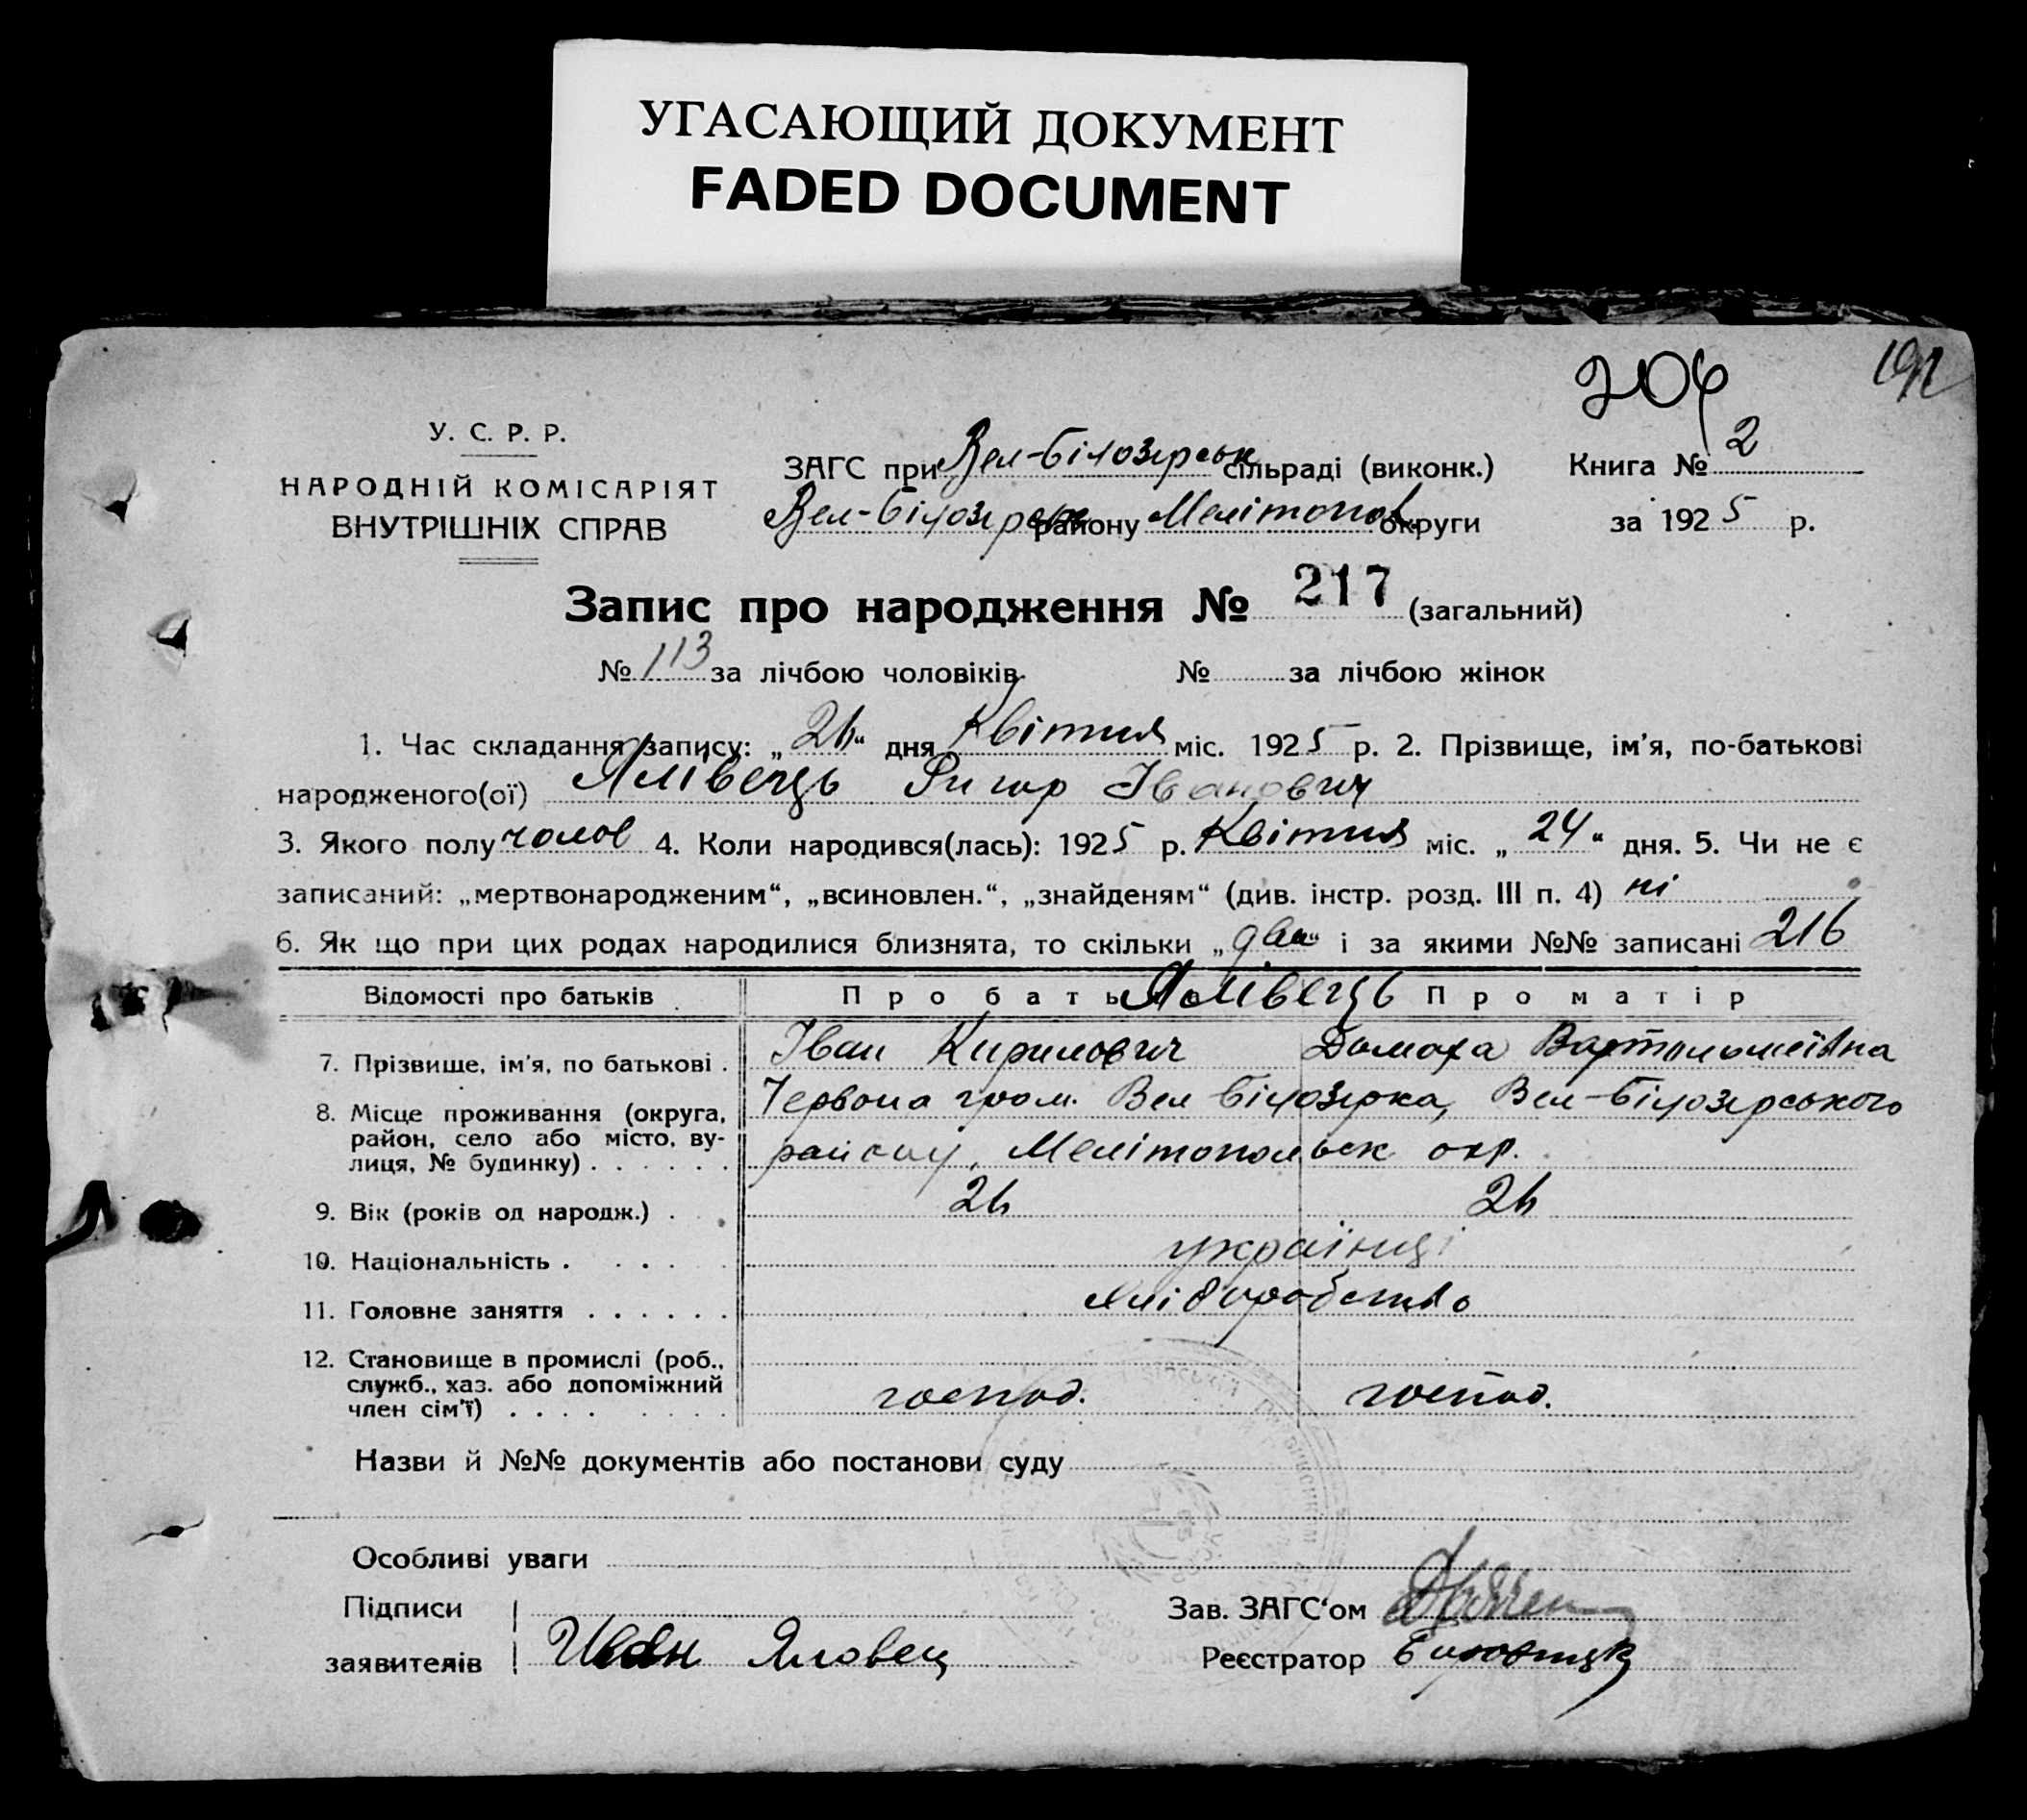 УГАСАЮЩИЙ ДОКУМЕНТ
FADED DOCUMENT
204
192
У. С. Р. Р.
НАРОДНІЙ КОМІСАРІЯТ
ВНУТРІШНІХ СПРАВ
ЗАГС при Вел-Білозерськ сільраді (виконк.) Книга № 2
Вел-Білозерськ району Мелітопол. округи за 1925 р.
Запис про народження № 217 (загальний)
№ 113 за лічбою чоловіків № за лічбою жінок
1. Час складання запису: „26“ дня Квітня міс. 1925 р. 2. Прізвище, ім'я, по-батькові
народженого(ої) Яловець Григор Іванович
3. Якого полу чолов 4. Коли народився(лась): 1925 р. Квітня міс. „24“ дня. 5. Чи не є
записаний: „мертвонародженим“, „всиновлен.“, „знайденям“ (див. інстр. розд. III п. 4) ні
6. Як що при цих родах народилися близнята, то скільки „два“ і за якими №№ записані 216
Відомості про батьків Про батька Яловець Про матір
7. Прізвище, ім'я, по батькові . Іван Кирилович Домаха Вартоломеївна
8. Місце проживання (округа, район, село або місто, вулиця, № будинку) . . . . . . Червона гром. Вел Білозерка, Вел-Білозерського
району, Мелітопольськ окр.
9. Вік (років од народж.) . . 26 26
10. Національність . . . . . українці
11. Головне заняття . . . . . . хліборобство
12. Становище в промислі (роб., служб., хаз. або допоміжний член сім'ї) . . . . господ. господ.
Назви й №№ документів або постанови суду
Особливі уваги
Підписи
заявителів Иван Яловец
Зав. ЗАГС'ом
Реєстратор